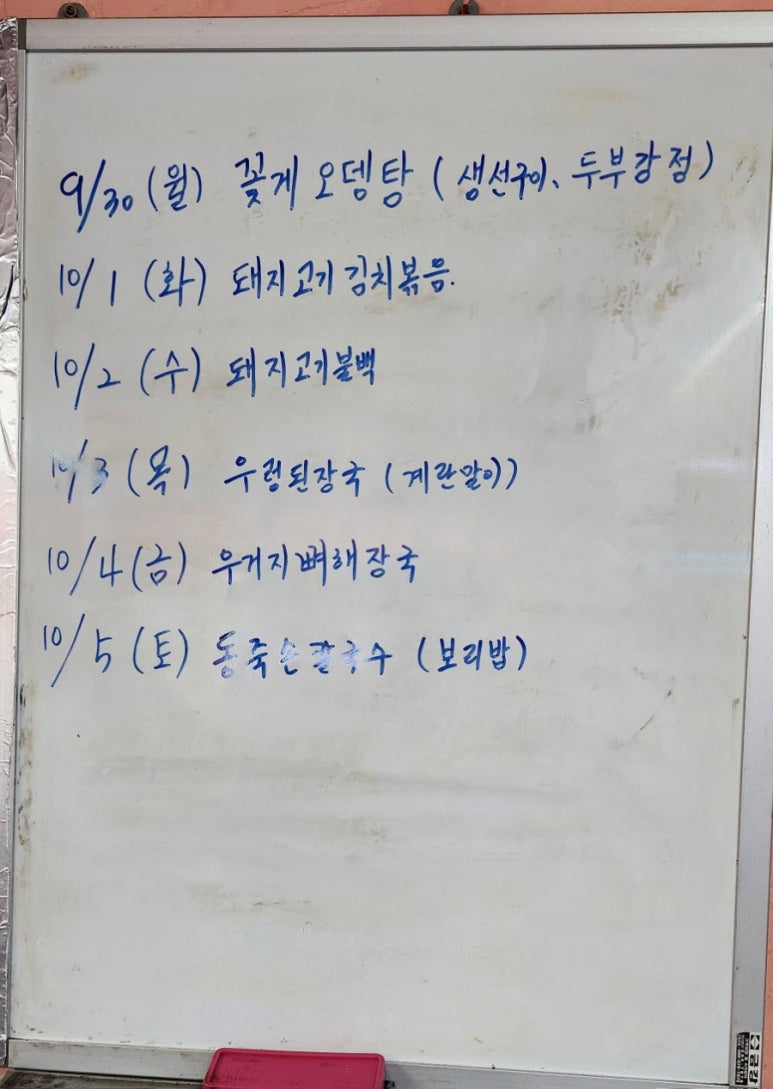 9/30 (월) 꽃게 오뎅탕 (생선구이、두부강점)
10/1 (화) 돼지고기 김치볶음.
10/2 (수) 돼지고기불백
10/3 (목) 우렁된장국 (계란말이)
10/4 (금) 우거지뼈해장국
10/5 (토) 동죽손칼국수 (보리밥)